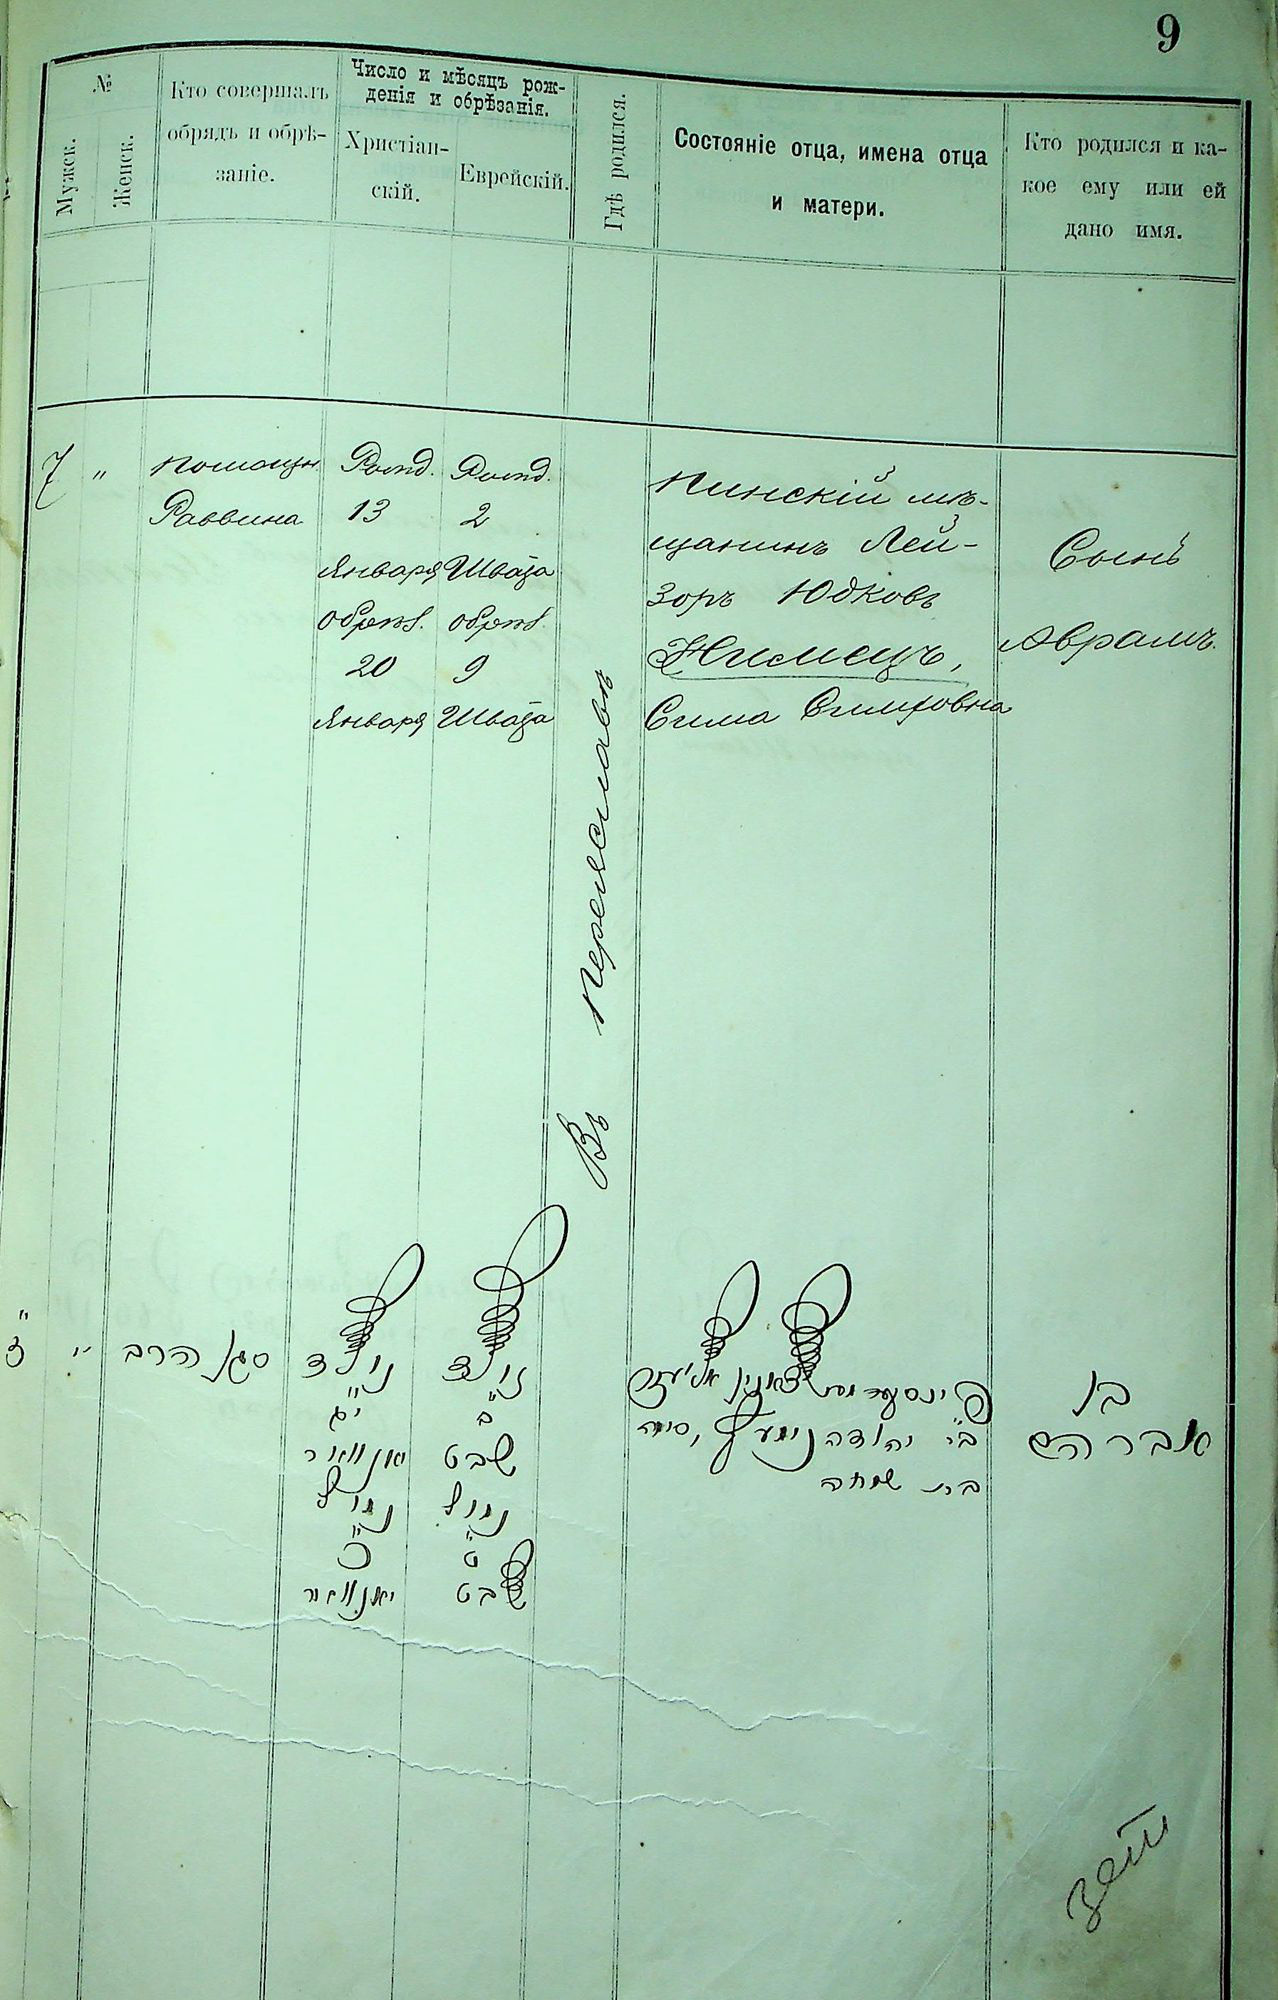 9
№
Мужск.
Женск.
Кто совершалъ
обрядъ и обрѣ-
заніе.
Число и мѣсяцъ рож-
денія и обрѣзанія.
Христіан-
скій.
Еврейскій.
Гдѣ родился.
Состояніе отца, имена отца
и матери.
Кто родился и ка-
кое ему или ей
дано имя.
7
"
Помощн.
Раввина
Рожд.
13
Января
обрѣз.
20
Января
Рожд.
2
Швата
обрѣз.
9
Швата
Въ Переяславѣ
Пинскій мѣ-
щанинъ Лей-
зоръ Юдковъ
Нимецъ,
Сима
Сынъ
Аврамъ.
ז
"
סגן הרב
נולד
י״ג
יאנוואר
נמול
כ
יאנוואר
נולד
ב
שבט
נמול
ט
שבט
אליעזר
יהודה
סימה
בת שמחה
בן
אברהם